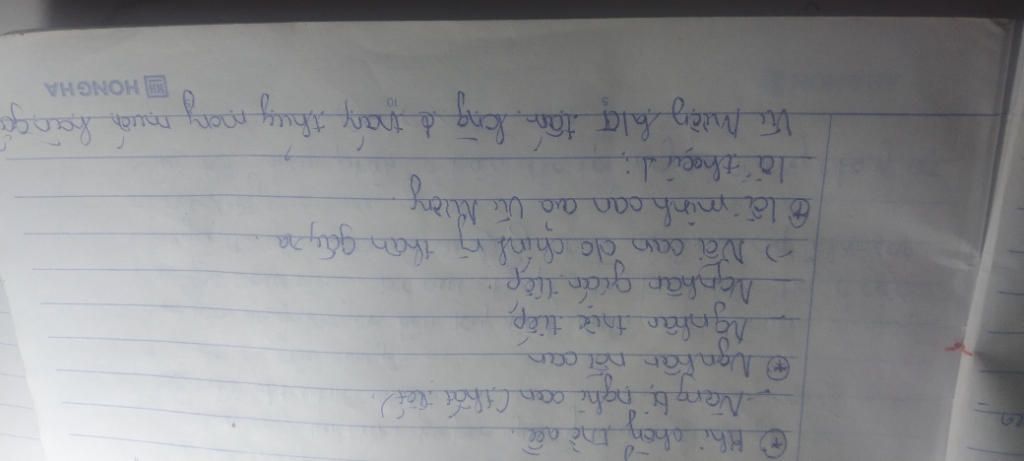 ⊛ Khi chồng trở về.
- Nàng bị nghi oan (thất tiết).
⊛ Ng nhân nỗi oan
- Ng nhân trực tiếp
- Ng nhân gián tiếp
=> Nỗi oan do chính ng thân gây ra.
⊛ lời minh oan của Vũ Nương.
thoại 1:
Vũ Nương tấm lòng thủy mong muốn hàn gắ
HONGHA